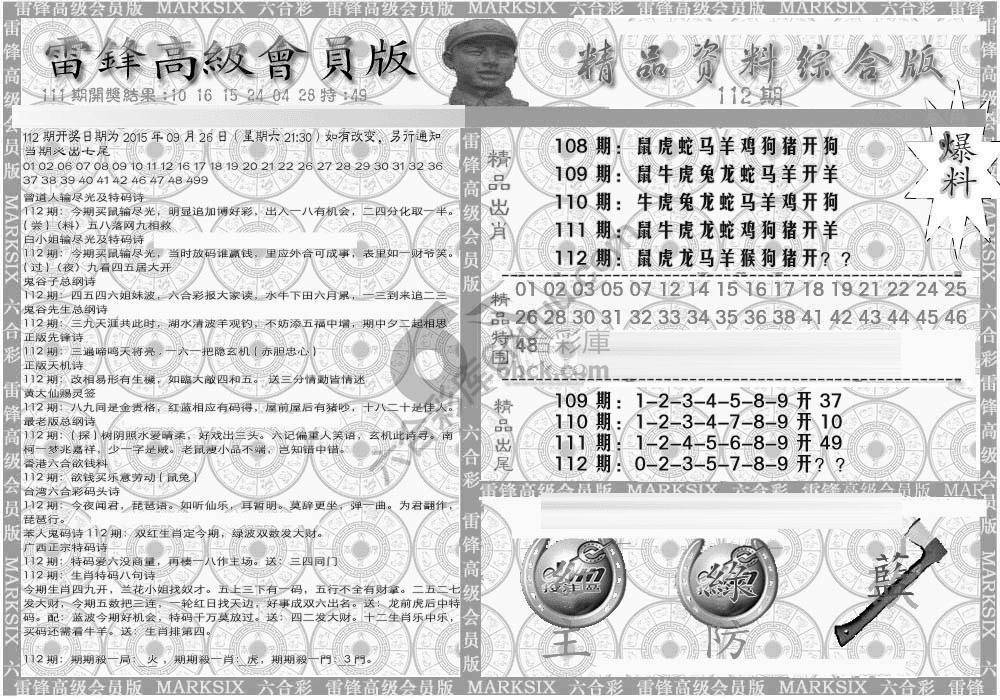 雷鋒高級會員版
111期開獎結果:10 16 15 24 04 28 特:49
精品资料综合版
112期
爆料
112期开奖日期为2015年09月26日（星期六21:30）如有改变，另行通知
当期必出七尾
01 02 06 07 08 09 10 11 12 16 17 18 19 20 21 22 26 27 28 29 30 31 32 36
37 38 39 40 41 42 46 47 48 499
曾道人输尽光及特码诗
112期：今期买鼠输尽光，明显追加博好彩，出入一八有机会，二四分化取一半。
{尝}（料）五八落网九相救
白小姐输尽光及特码诗
112期：今期买鼠输尽光，当时放码谁赢钱，里应外合可成事，表里如一财爷笑。
{过}（夜）九看四五居大开
鬼谷子总纲诗
112期：四五四六姐妹波，六合彩报大家读，水牛下田六月累，一三到来追二三
鬼谷先生总纲诗
112期：三九天涯共此时，湖水清波羊观钓，不奶添五福中增，期中夕二起相思
正版先锋诗
112期：三遍啼鸣天将亮，一六一把隐玄机{赤胆忠心}
正版天机诗
112期：改相易形有生機，如臨大敵四和五。送三分情勤皆情迷
黄大仙赐灵签
112期：八九同是金贵格，红蓝相应有码得，屋前屋后有猪吵，十八二十是佳人。
最老版总纲诗
112期：{探}树阴照水爱晴柔，好戏出三头。六记偏重人笑语，玄机此诗寻。南
柯一梦兆嘉祥，少一字是贼。老鼠搜小品不端，岂知错中错。
香港六合欲钱料
112期：欲钱买乐意劳动{鼠兔}
台湾六合彩码头诗
112期：今夜闻君，琵琶语。如听仙乐，耳暂明。莫辞更坐，弹一曲。为君翻作，
琵琶行。
苯人鬼码诗112期：双红生肖定今期，绿波双数发大财。
广西正宗特码诗
112期：特码爱六没商量，再楱一八作主场。送：三四同门
112期：生肖特码八句诗
今期生肖四九开，兰花小姐找奴才。五上三下有一码，五行不全有财拿。二五二七
发大财，今期五数把三连，一轮红日找天边，好事成双六出名。送：龙前虎后中特
码。配：蓝波今期好机会，特码千万莫放过。送：四二发大财。十二生肖乐中乐，
买码还需看牛羊。送：生肖排第四。
112期：期期殺一局：火，期期殺一肖：虎，期期殺一門：3門。
精品出肖
108期：鼠虎蛇马羊鸡狗猪开狗
109期：鼠牛虎兔龙蛇马羊开羊
110期：牛虎兔龙蛇马羊鸡开狗
111期：鼠牛虎龙蛇鸡狗猪开羊
112期：鼠虎龙马羊猴狗猪开？？
精品特围
01 02 03 05 07 12 14 15 16 17 18 19 21 22 24 25
26 28 30 31 32 33 34 35 36 38 41 42 43 44 45 46
48
精品出尾
109期：1-2-3-4-5-8-9开37
110期：1-2-3-4-7-8-9开10
111期：1-2-4-5-6-8-9开49
112期：0-2-3-5-7-8-9开？？
綠
藍
主
防
雷锋高级会员版 MARKSIX 六合彩